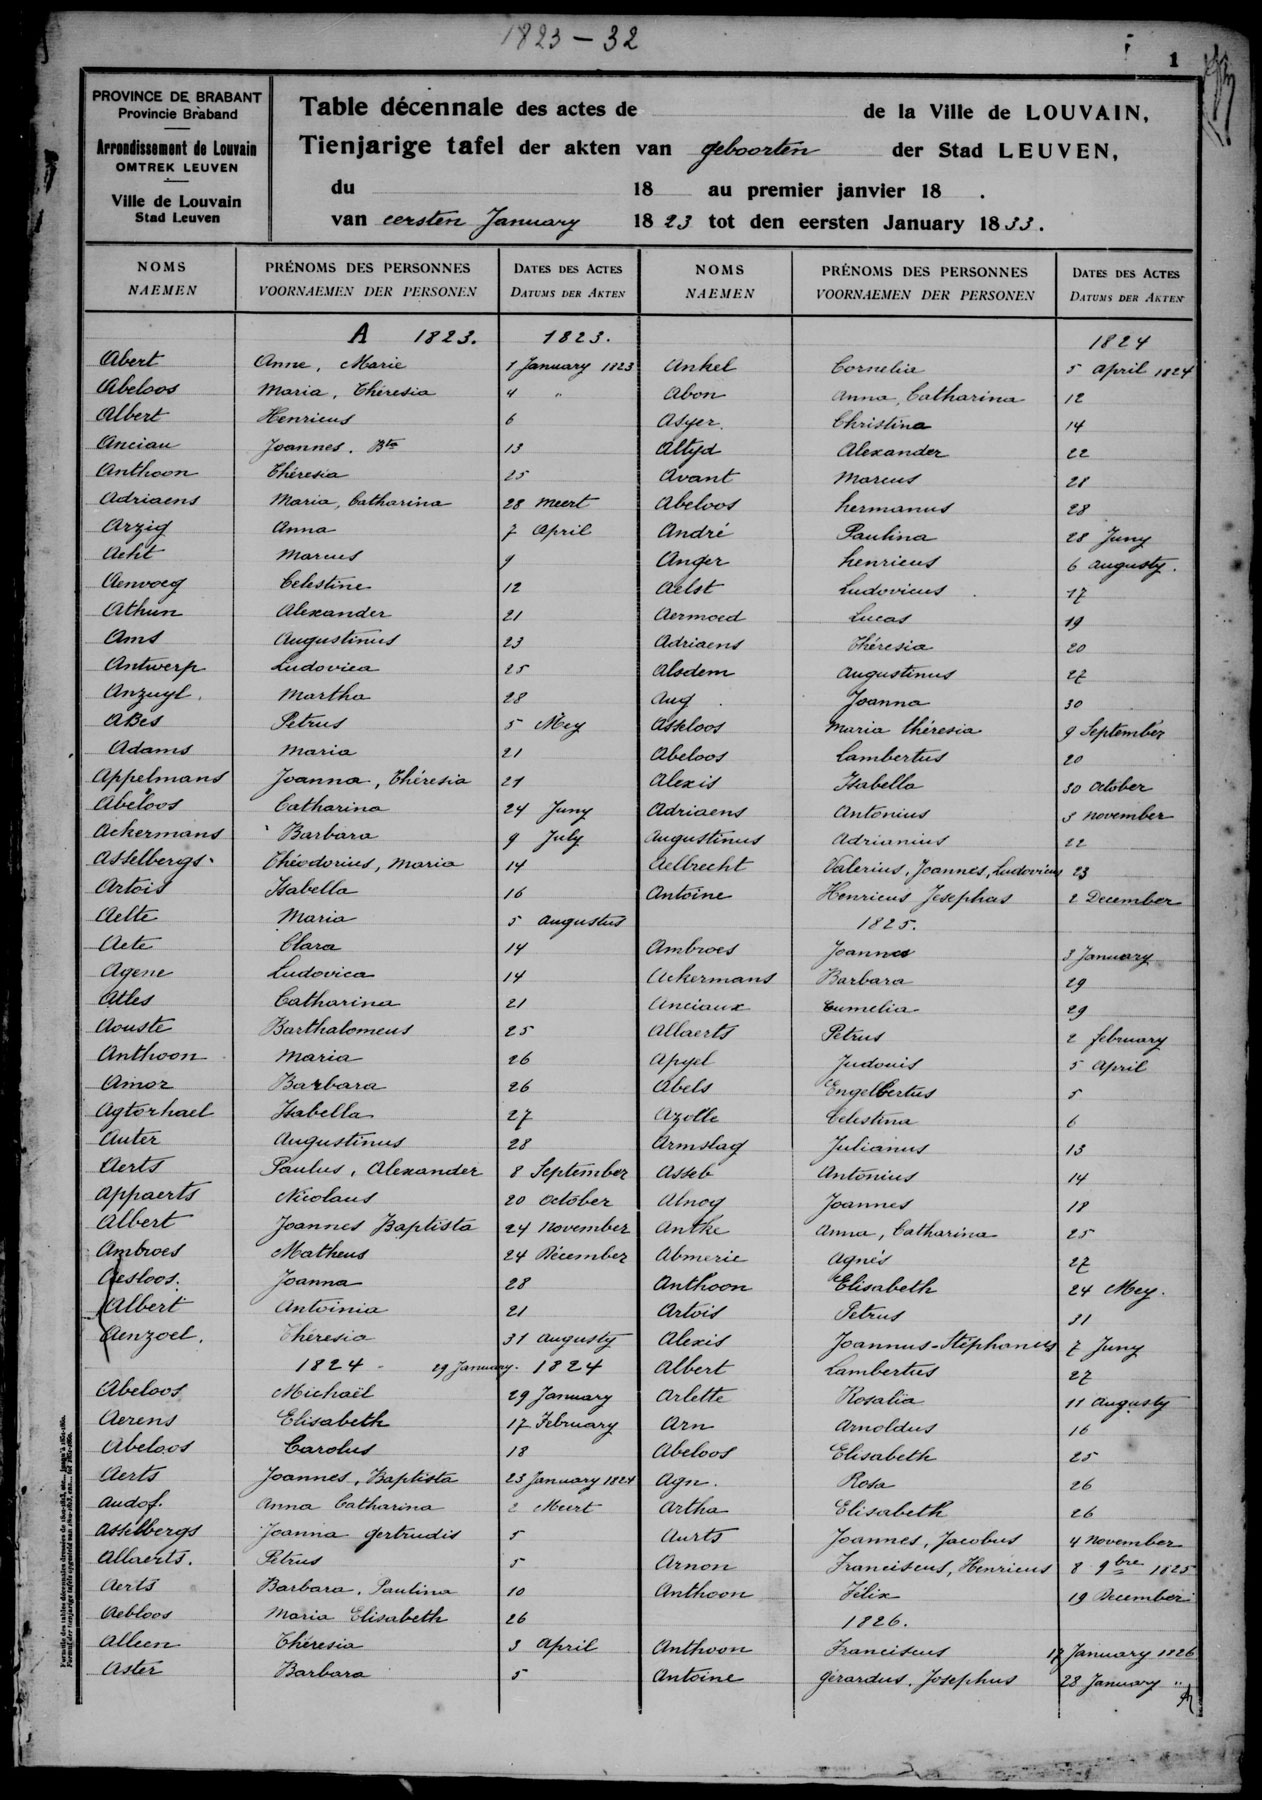 1823 – 32
1
PROVINCE DE BRABANT
Provincie Braband
Arrondissement de Louvain
OMTREK LEUVEN
Ville de Louvain
Stad Leuven
Table décennale des actes de de la Ville de LOUVAIN,
Tienjarige tafel der akten van geboorten der Stad LEUVEN,
du 18 au premier janvier 18 .
van eersten January 1823 tot den eersten January 1833.
NOMS PRÉNOMS DES PERSONNES DATES DES ACTES NOMS PRÉNOMS DES PERSONNES DATES DES ACTES
NAEMEN VOORNAEMEN DER PERSONEN DATUMS DER AKTEN NAEMEN VOORNAEMEN DER PERSONEN DATUMS DER AKTEN
A 1823. 1823.
Abert Anne, Marie 1 January 1823
Abeloos Maria, Théresia 4 "
Albert Henricus 6
Anciau Joannes. Bte 13
Anthoon Théresia 25
Adriaens Maria, Catharina 28 Meert
Arzig Anna 7 April
Acht Marcus 9
Aenvoeg Celestine 12
Athun Alexander 21
Ams Augustinus 23
Antwerp Ludovica 25
Anzuyl. Martha 28
Abes Petrus 5 Mey
Adams Maria 21
Appelmans Joanna, Théresia 21
Abeloos Catharina 24 Juny
Ackermans Barbara 9 July
Asselbergs Théodorius, Maria 14
Artois Isabella 16
Aelte Maria 5 Augustus
Aete Clara 14
Agene Ludovica 14
Atles Catharina 21
Aouste Barthalomeus 25
Anthoon Maria 26
Amor Barbara 26
Agtorhael Isabella 27
Auter Augustinus 28
Aerts Paulus, Alexander 8 September
Appaerts Nicolaus 20 October
Albert Joannes Baptista 24 November
Ambroes Matheus 24 Décember
Aesloos. Joanna 28
Albert Antoinia 21
Aenzoel. Théresia 31 Augusty
1824 - 29 January. 1824
Abeloos Michaël 29 January
Aerens Elisabeth 17 February
Abeloos Carolus 18
Aerts Joannes, Baptista 23 January 1824
Audof. Anna Catharina 2 Meert
Asselbergs Joanna Gertrudis 5
Allaerts. Petrus 5
Aerts Barbara, Paulina 10
Aebloos Maria Elisabeth 26
Alleen Théresia 3 April
Aster Barbara 5
1824
Ankel Cornelia 5 April 1824
Abon Anna, Catharina 12
Asyer. Christina 14
Altyd Alexander 22
Avant Marcus 28
Abeloos Hermanus 28
André Paulina 28 Juny
Anger Henricus 6 Augusty.
Aelst Ludovicus 17
Aermoed Lucas 19
Adriaens Théresia 20
Alsdem Augustinus 27
Aug Joanna 30
Asseloos Maria Théresia 9 September
Abeloos Lambertus 20
Alexis Isabella 30 October
Adriaens Antonius 3 November
Augustinus Adrianius 22
Aelbrecht Valerius, Joannes, Ludovicus 23
Antoine Henricus Josephus 2 December
1825.
Ambroes Joannes 3 January
Ackermans Barbara 29
Anciaux Eumelia 29
Allaerts Petrus 2 February
Apyel Judouis 5 April
Abels Engelbertus 5
Azolle Celestina 6
Armslag Julianus 13
Asseb Antonius 14
Alnog Joannes 18
Antke Anna, Catharina 25
Abmerie Agnés 27
Anthoon Elisabeth 24 Mey.
Artois Petrus 31
Alexis Joannus-Stéphanus 7 Juny
Albert Lambertus 27
Arlette Rosalia 11 Augusty
Arn Arnoldus 16
Abeloos Elisabeth 25
Agn. Rosa 26
Artha Elisabeth 26
Aurts Joannes, Jacobus 4 November
Arnon Franciscus, Henricus 8 9bre 1825
Anthoon Félix 19 December
1826.
Anthoon Franciscus 17 January 1826
Antoine Gérardus, Josephus 28 January "